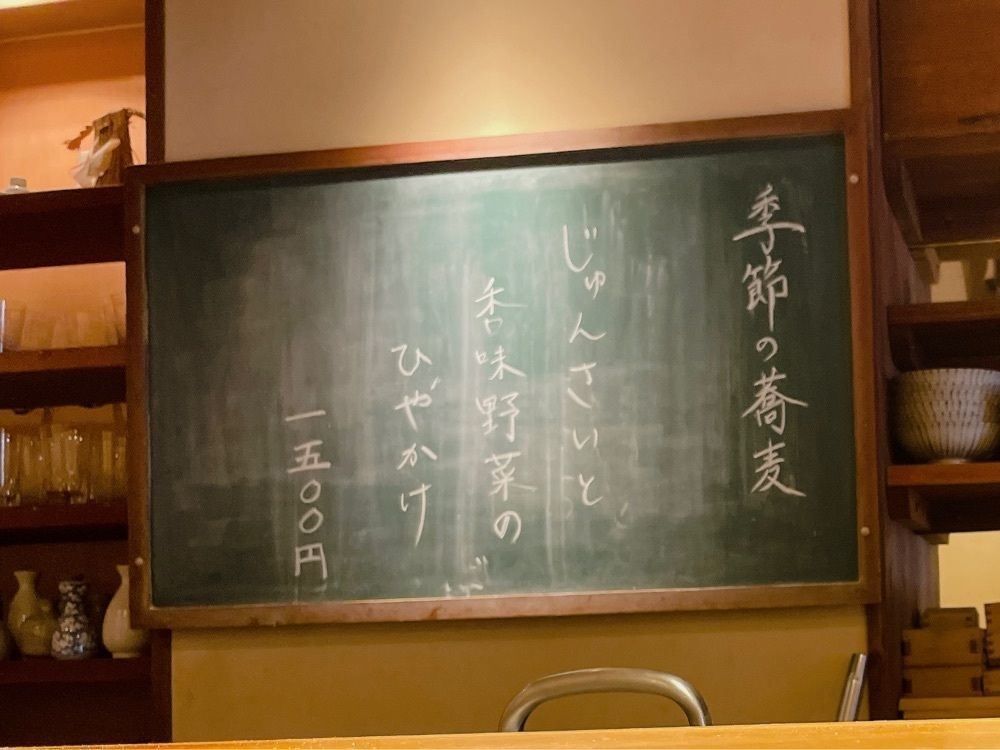 季節の蕎麦
じゅんさいと
香味野菜の
ひやかけ
一五〇〇円